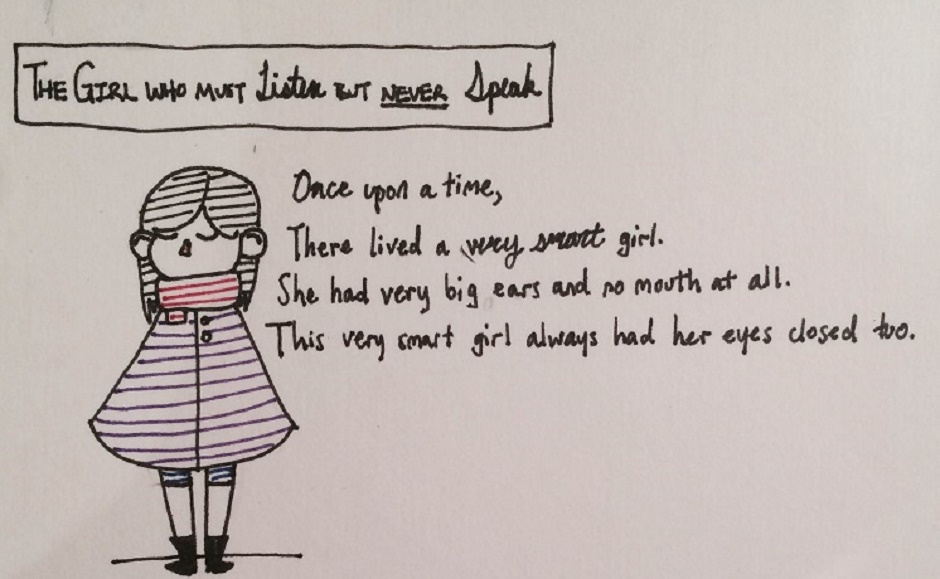 THE GIRL WHO MUST Listen BUT NEVER Speak
Once upon a time,
There lived a very smart girl.
She had very big ears and no mouth at all.
This very smart girl always had her eyes closed too.